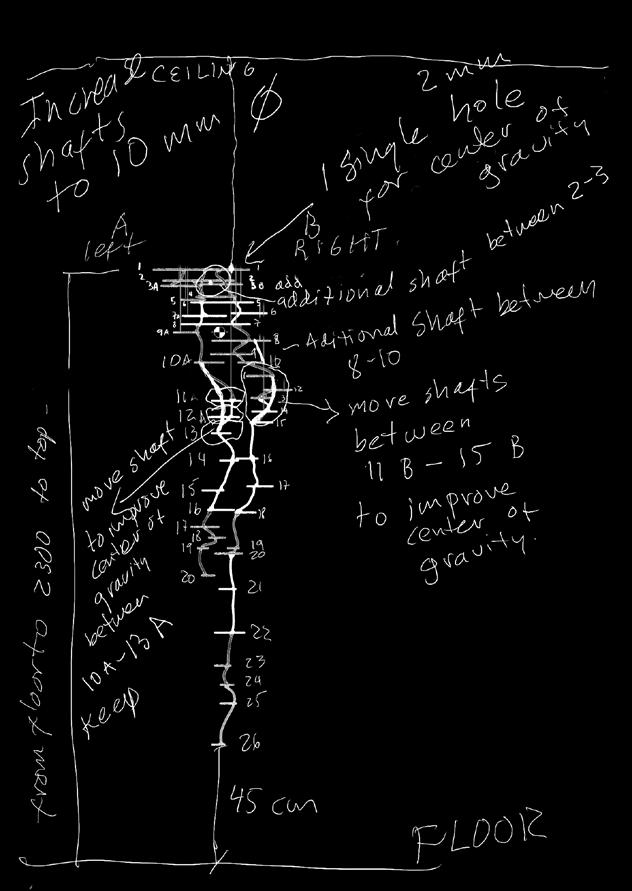 CEILING
Increase
shafts
to 10 mm
Ø
2 mm
1 single hole
for center of
gravity
A
left
B
RIGHT.
add
additional shaft between 2-3
Aditional shaft between
8-10
move shafts
between
11 B - 15 B
to improve
center of
gravity.
move shaft
to improve
center of
gravity
between
10A-13 A
keep
from floor to 2300 to top -
1
2
3A
5
9A
10A
12
13
14
15
16
17
18
19
20
5
6
7
8
12
15
16
17
18
19
20
21
22
23
24
25
26
45 cm
FLOOR